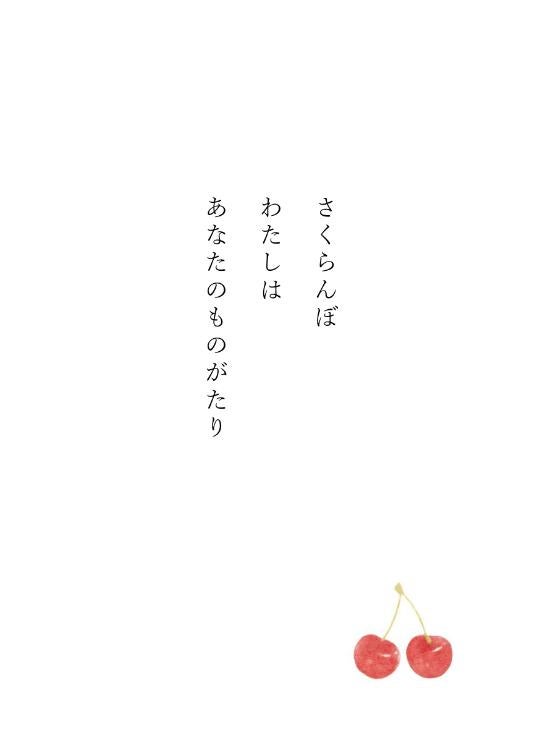 さくらんぼ
わたしは
あなたのものがたり